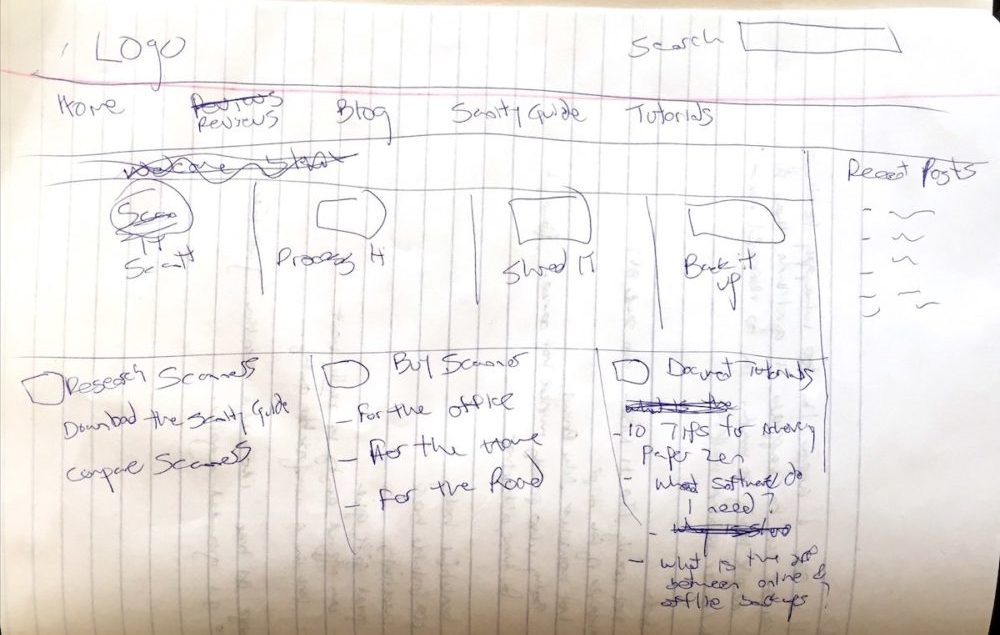 Logo
Search
Home
Reviews
Reviews
Blog
Scanity Guide
Tutorials
Recent Posts
Scan
IT
Scan It
Process It
Shred IT
Back it
up
Research Scanners
Download the Scanity Guide
Compare Scanners
Buy Scanner
- For the office
- For the Home
- For the Road
Document Tutorials
what is the
- 10 Tips for
Paper Zen
- what Software do
I need?
- what is the
between online &
offline backups?